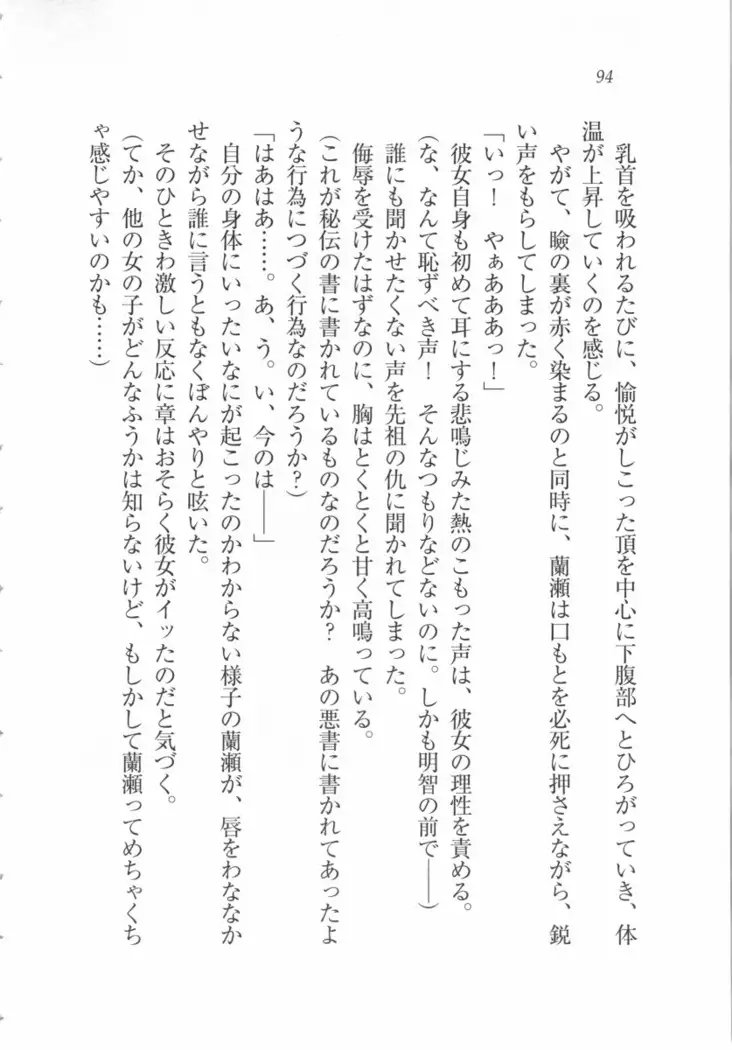 94
乳首を吸われるたびに、愉悦がしこった頂を中心に下腹部へとひろがっていき、体
温が上昇していくのを感じる。
やがて、瞼の裏が赤く染まるのと同時に、蘭瀬は口もとを必死に押さえながら、鋭
い声をもらしてしまった。
「いっ！　やぁあああっ！」
彼女自身も初めて耳にする悲鳴じみた熱のこもった声は、彼女の理性を責める。
(な、なんて恥ずべき声！　そんなつもりなどないのに。しかも明智の前で――)
誰にも聞かせたくない声を先祖の仇に聞かれてしまった。
侮辱を受けたはずなのに、胸はとくとくと甘く高鳴っている。
(これが秘伝の書に書かれているものなのだろうか？　あの悪書に書かれてあったよ
うな行為につづく行為なのだろうか？)
「はあはあ……。あ、う。い、今のは――」
自分の身体にいったいなにが起こったのかわからない様子の蘭瀬が、唇をわななか
せながら誰に言うともなくぼんやりと呟いた。
そのひときわ激しい反応に章はおそらく彼女がイッたのだと気づく。
(てか、他の女の子がどんなふうかは知らないけど、もしかして蘭瀬ってめちゃくち
ゃ感じやすいのかも……)